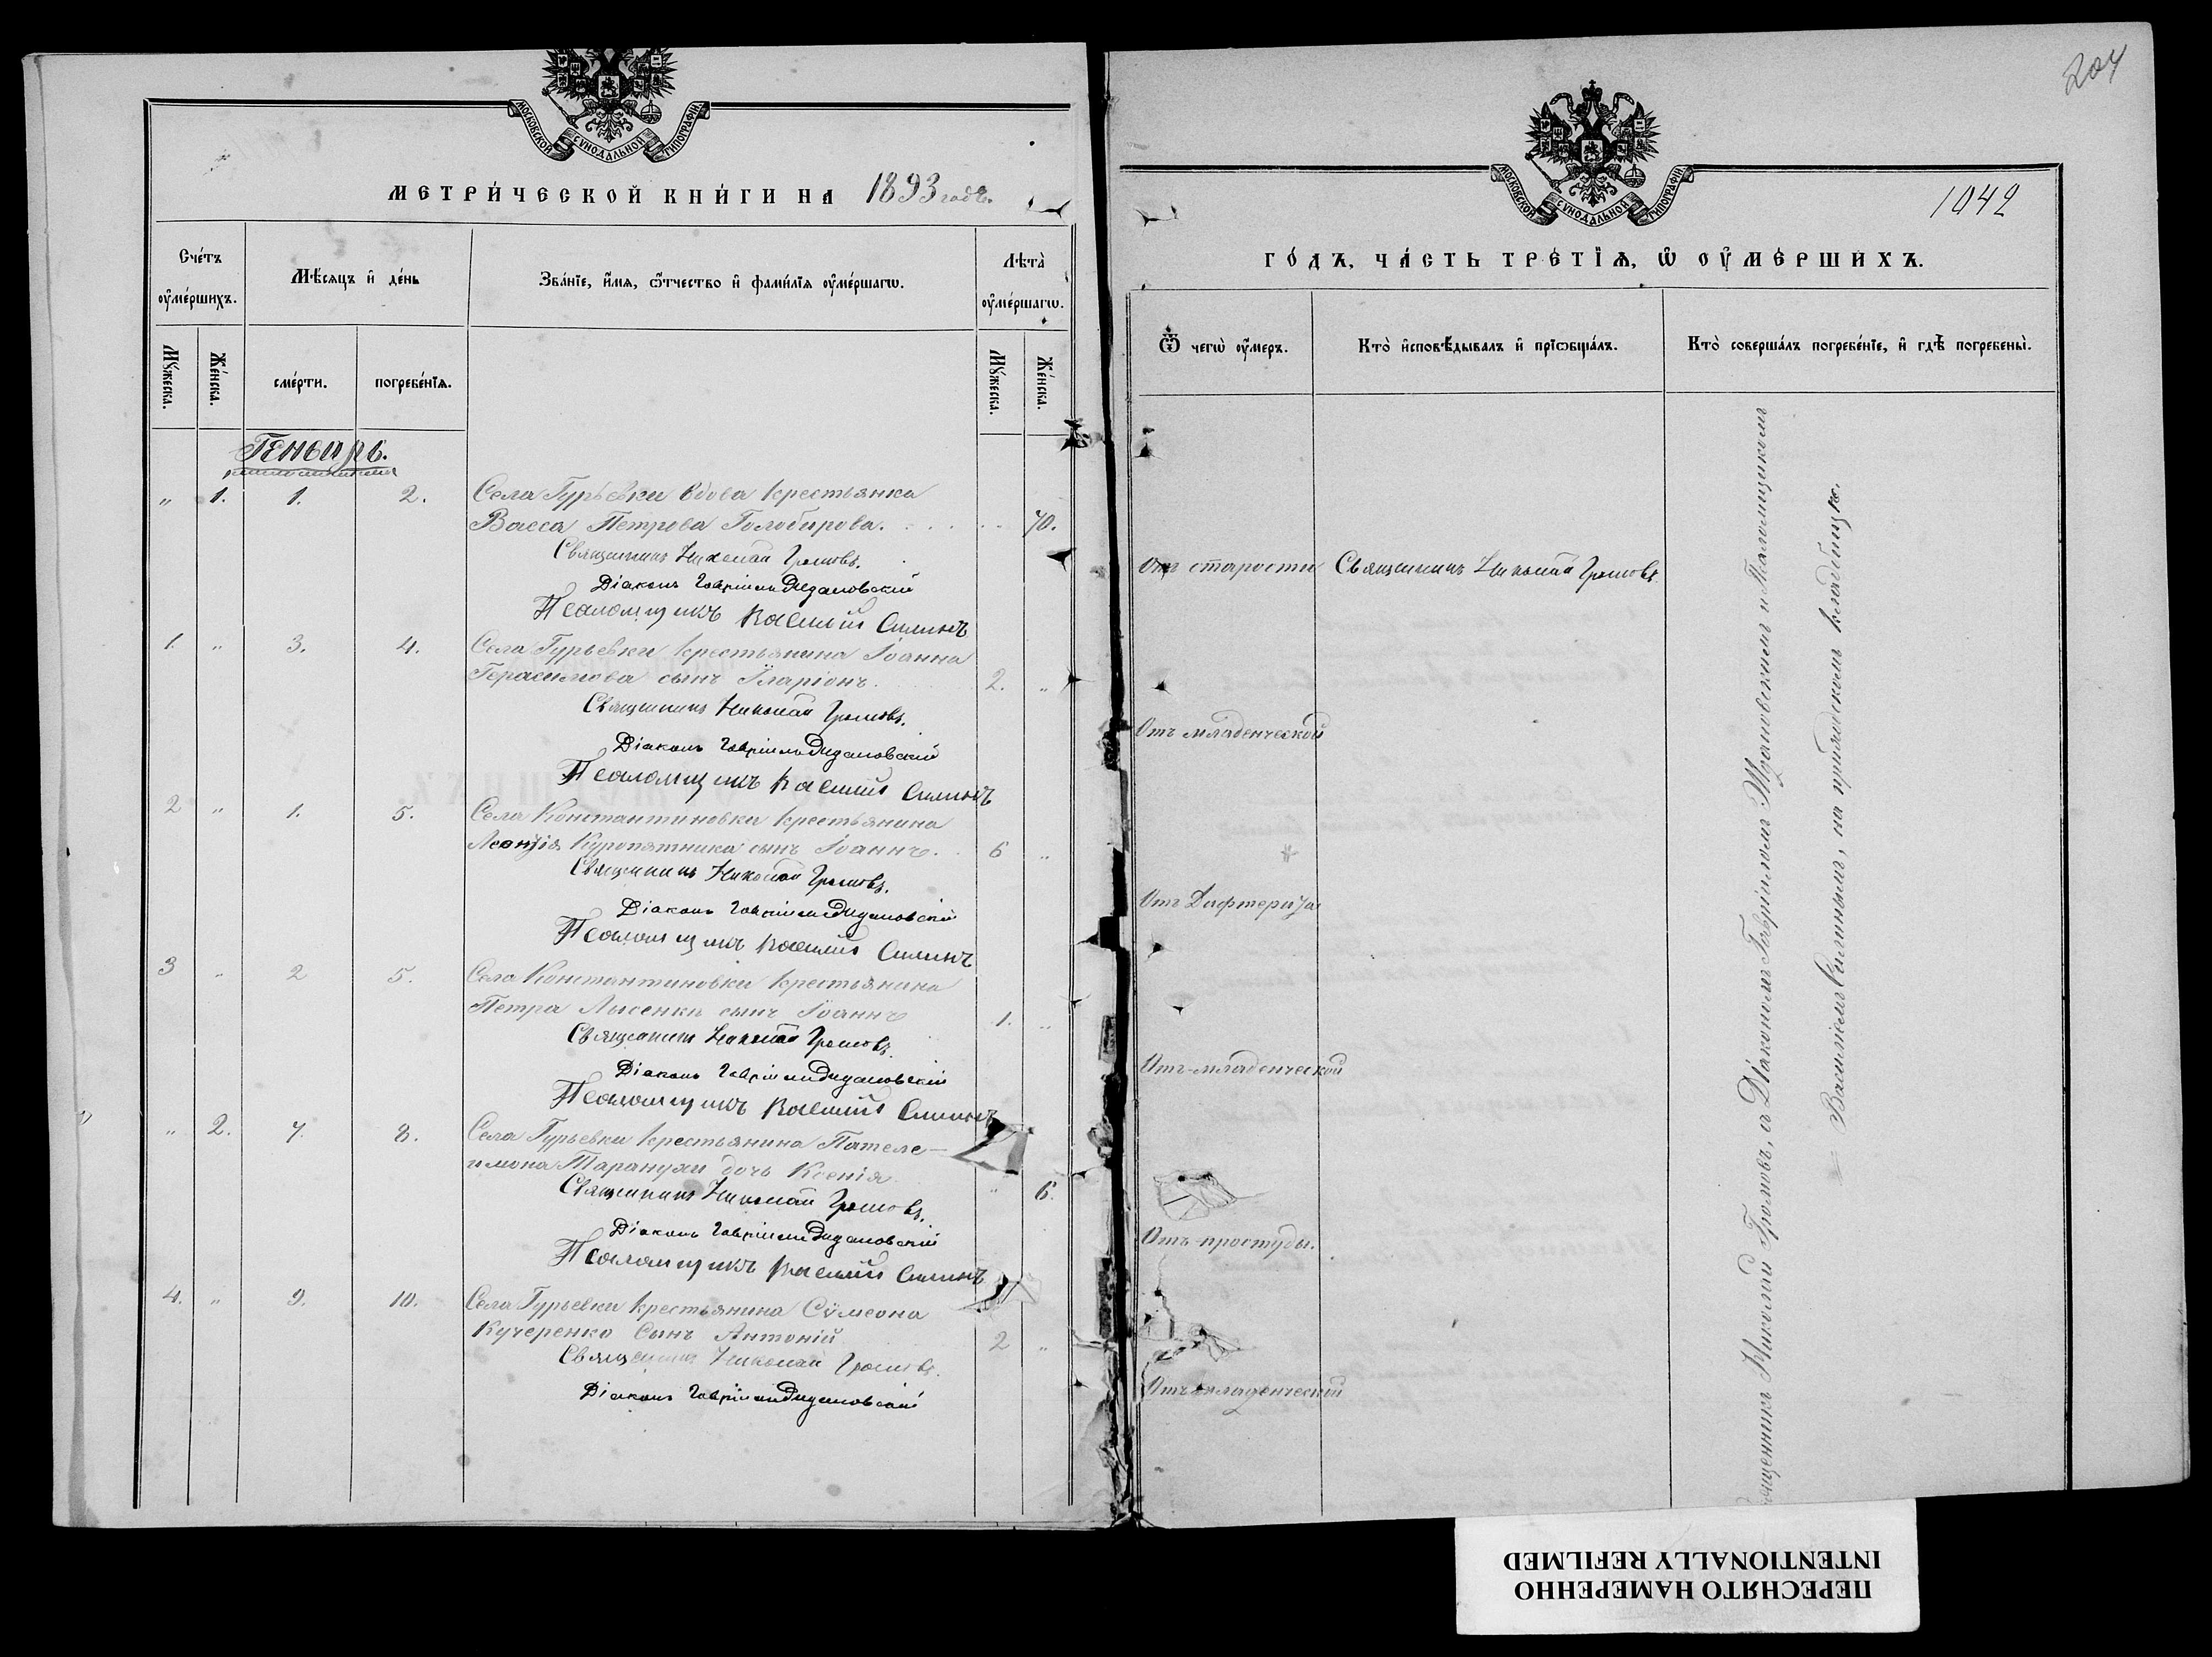 204
МОСКОВСКОЙ СѴНОДАЛЬНОЙ ТИПОГРАФІИ
МЕТРИ́ЧЕСКОЙ КНИ́ГИ НА 1893 годъ.
Сче́тъ ѹ҆ме́ршихъ.
Мѣ́сяцъ и҆ де́нь
Зва́нїе, и҆́мѧ, ѻ҆́тчество и҆ фами́лїѧ ѹ҆ме́ршагѡ.
Лѣта̀ ѹ҆ме́ршагѡ.
Мꙋ́жеска.
Же́нска.
сме́рти.
погребе́нїѧ.
Мꙋ́жеска.
Же́нска.
Генварь.
„ 1. 1. 2. Села Гурьевки вдова крестьянка
Васса Петрова Голобирова. 70.
Священникъ Николай Громовъ.
Діаконъ Гавріилъ Ждановскій
Псаломщикъ Василій Силинъ
1. „ 3. 4. Села Гурьевки крестьянина Іоанна
Герасимова сынъ Иларіонъ. 2. „
Священникъ Николай Громовъ.
Діаконъ Гавріилъ Ждановскій
Псаломщикъ Василій Силинъ
2 „ 1. 5. Села Константиновки крестьянина
Леонтія Куропятника сынъ Іоаннъ. 6 „
Священникъ Николай Громовъ.
Діаконъ Гавріилъ Ждановскій
Псаломщикъ Василій Силинъ
3 „ 2 5. Села Константиновки крестьянина
Петра Лысенки сынъ Іоаннъ 1. „
Священникъ Николай Громовъ.
Діаконъ Гавріилъ Ждановскій
Псаломщикъ Василій Силинъ
„ 2. 7. 8. Села Гурьевки крестьянина Пателе-
имона Таранухи дочь Ксенія „ 6.
Священникъ Николай Громовъ.
Діаконъ Гавріилъ Ждановскій
Псаломщикъ Василій Силинъ
4. „ 9. 10. Села Гурьевки крестьянина Сѵмеона
Кучеренко Сынъ Антоній 2 „
Священникъ Николай Громовъ.
Діаконъ Гавріилъ Ждановскій
МОСКОВСКОЙ СѴНОДАЛЬНОЙ ТИПОГРАФІИ
1042
ГО́ДЪ, ЧА́СТЬ ТРЕ́ТЇѦ, Ѡ ОУ҆МЕ́РШИХЪ.
Ѿ чегѡ̀ ѹ҆́меръ.
Кто̀ и҆сповѣ́дывалъ и҆ прїѡбща́лъ.
Кто̀ соверша́лъ погребе́нїе, и҆ гдѣ̀ погребены̀.
Отъ старости Священникъ Николай Громовъ.
Отъ младенческой
Отъ Дифтерита
Отъ младенческой
Отъ простуды.
Отъ младенческой
Николай Громовъ, съ Діакономъ Гавріиломъ Ждановскимъ и Псаломщикомъ
Василіемъ Силинымъ, на приходскомъ кладбищѣ.
ПЕРЕСНЯТО НАМЕРЕННО
INTENTIONALLY REFILMED